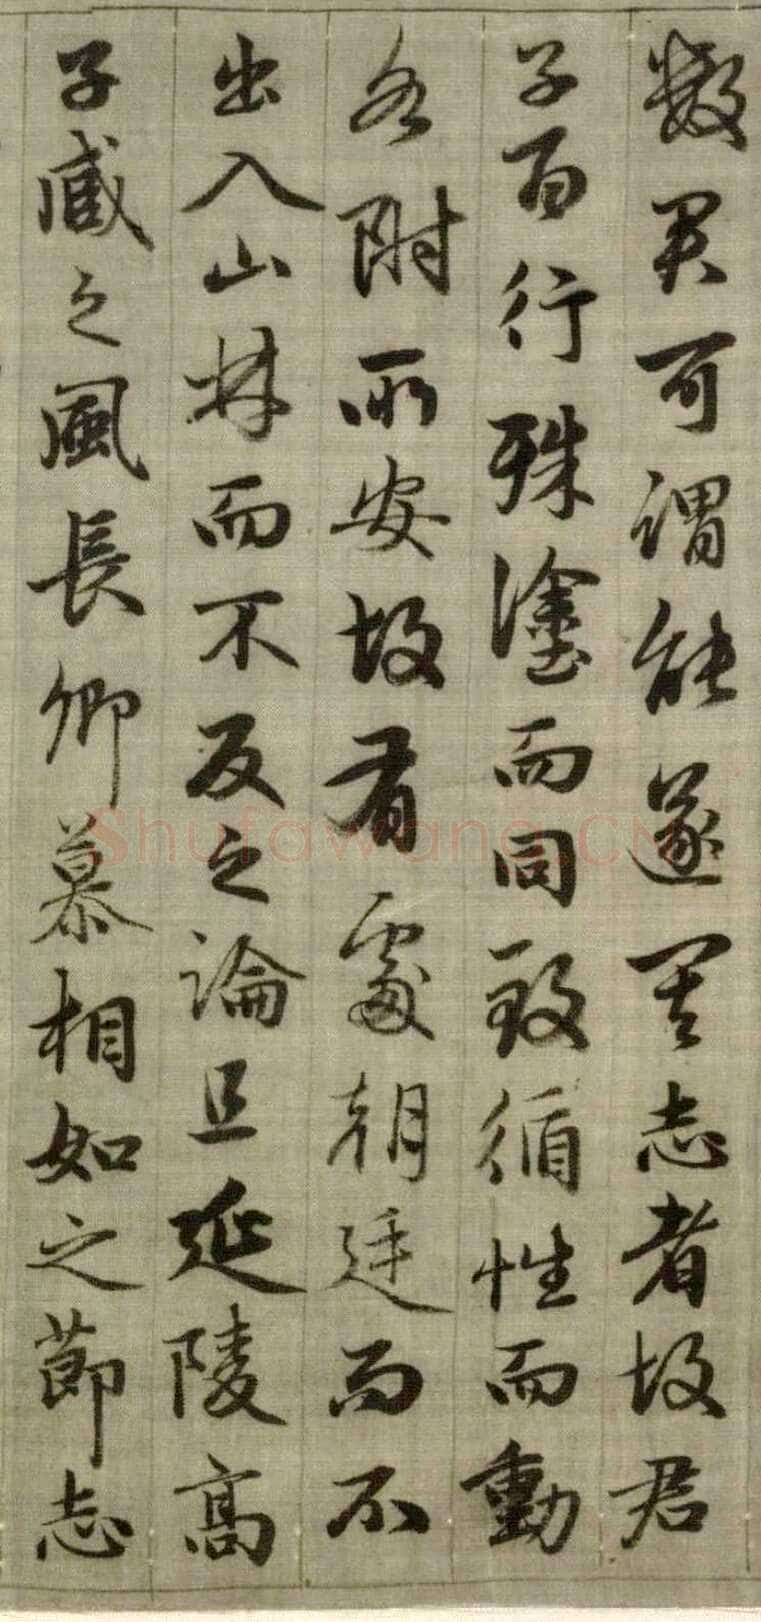 數君可謂能遂其志者故君
子百行殊塗而同致循性而動
各附所安故有處朝廷而不
出入山林而不反之論且延陵高
子臧之風長卿慕相如之節志
Shufawang.CN